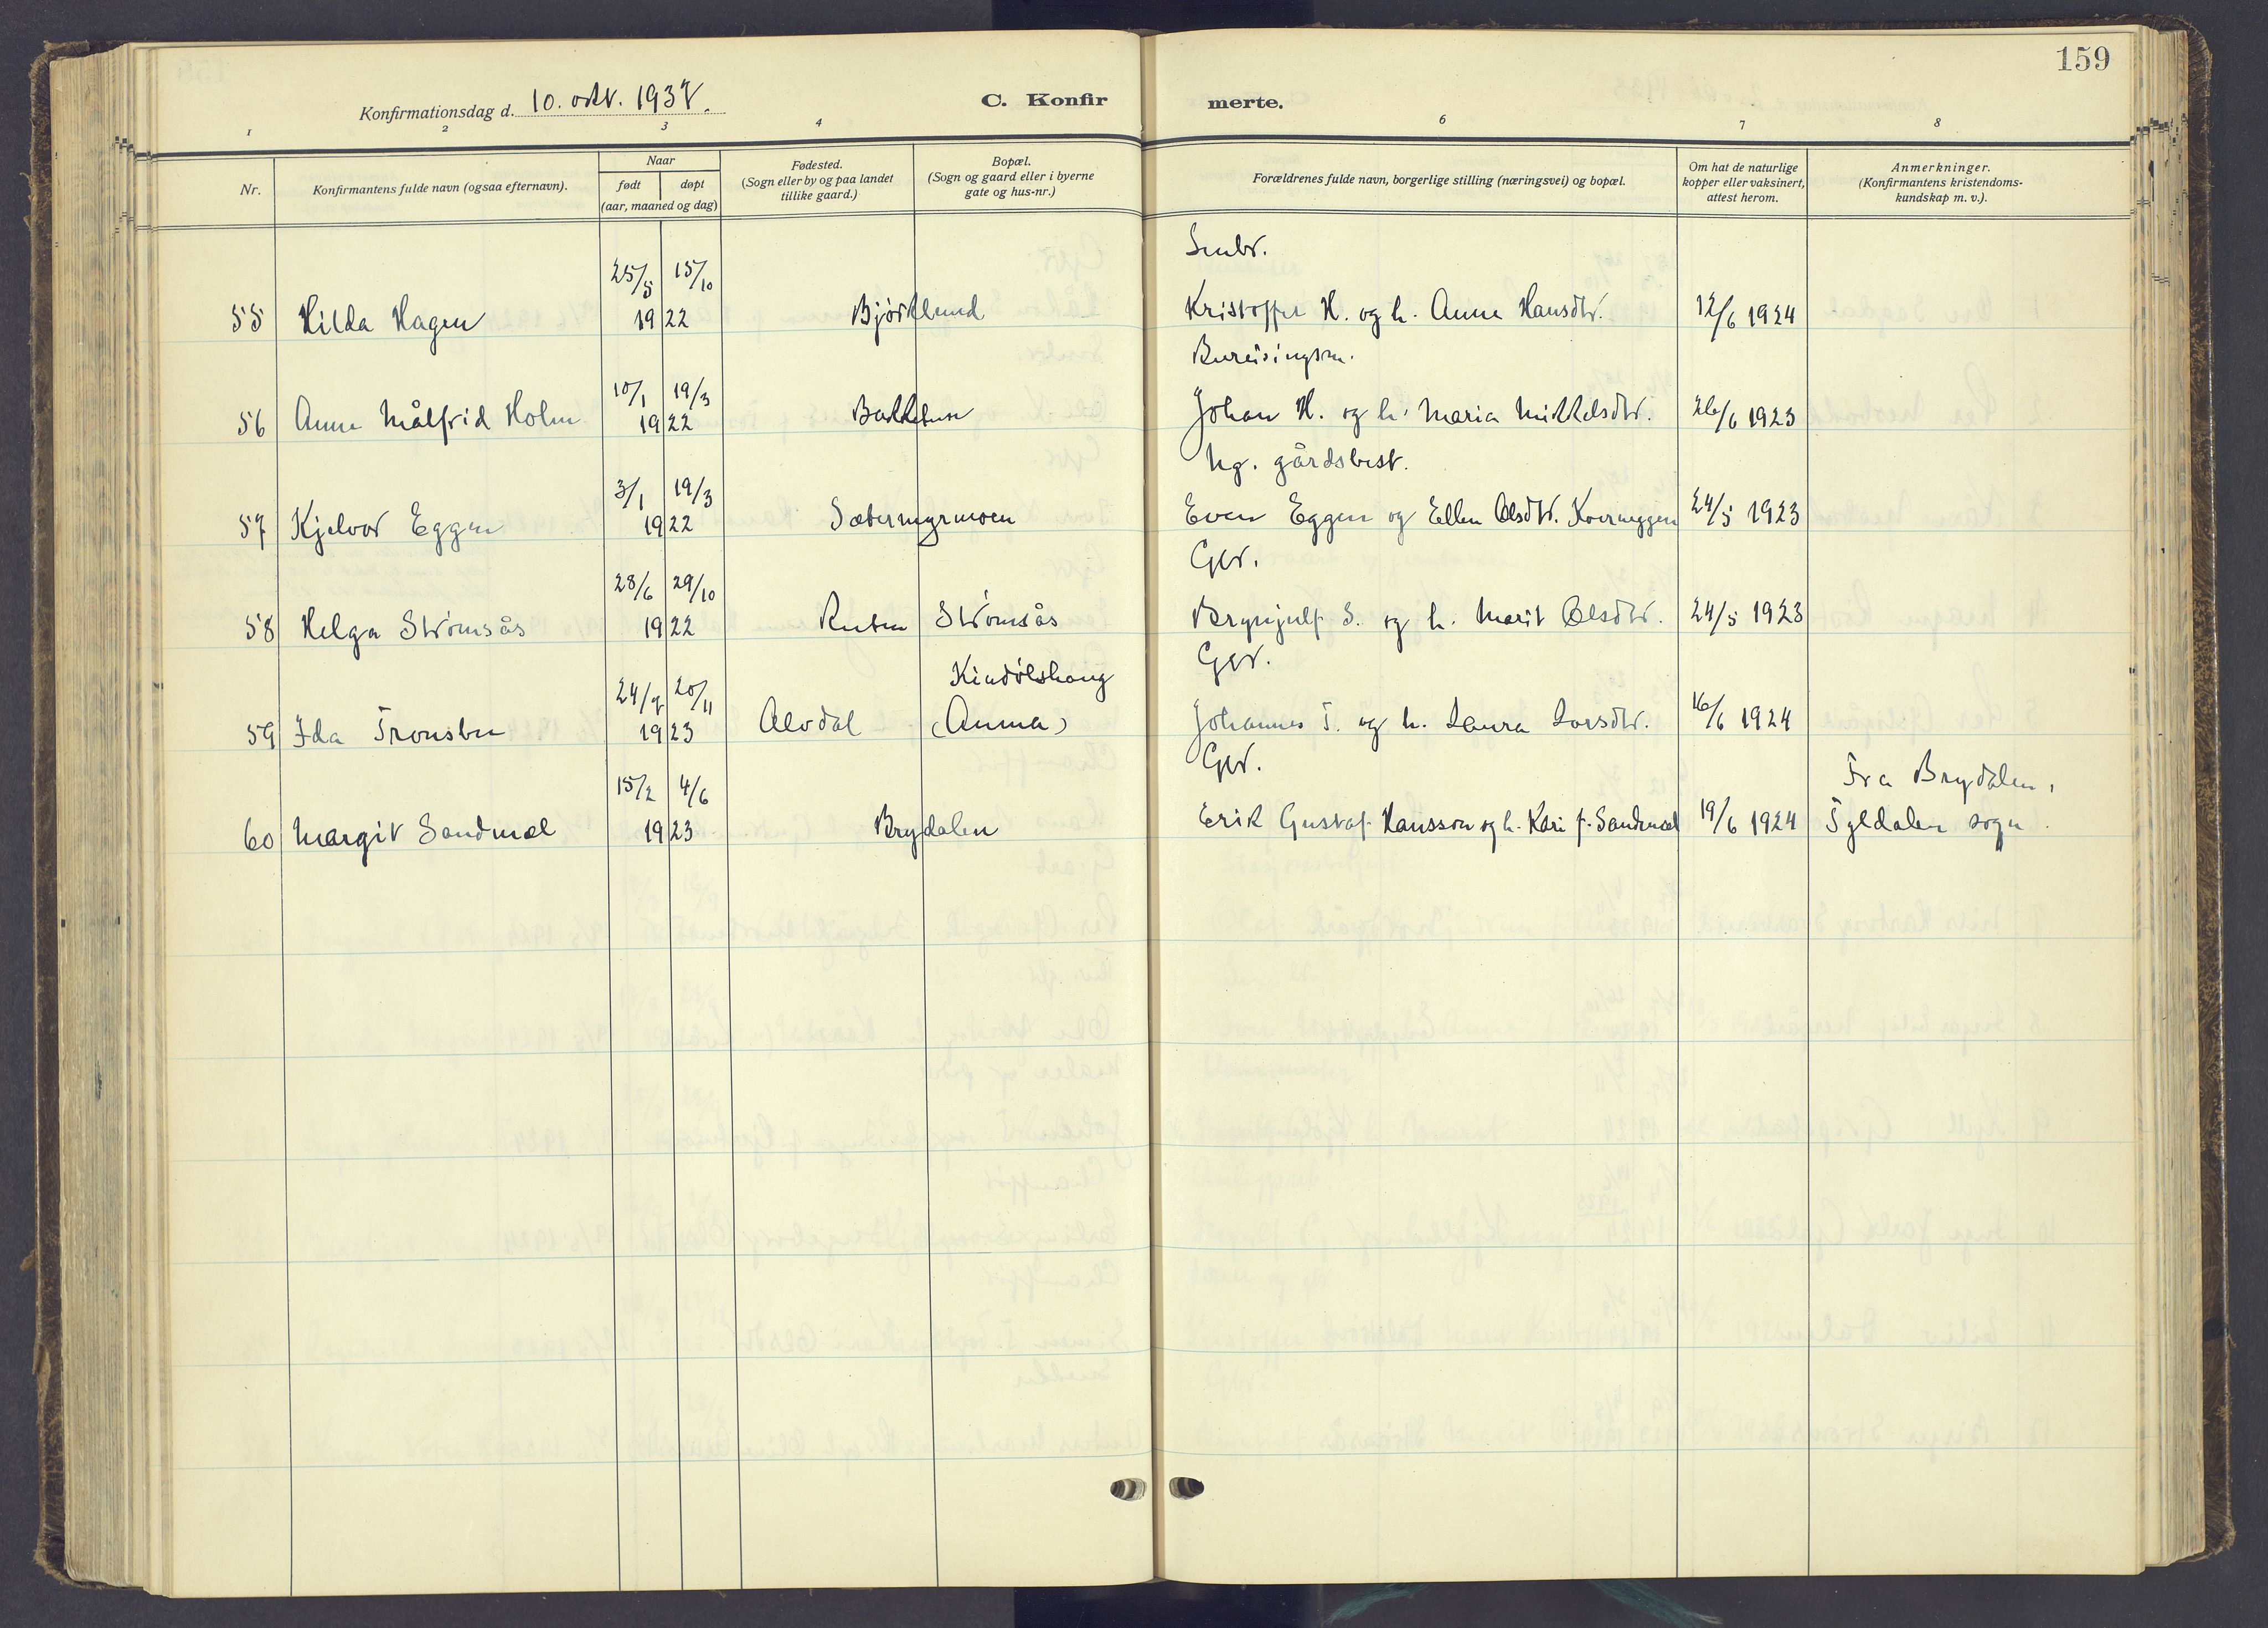 159
Konfirmationsdag d. 10. okt. 1937.
C. Konfirmerte.
1 2 3 4 6 7 8
Nr.
Konfirmantens fulde navn (ogsaa efternavn).
Naar
født døpt
(aar, maaned og dag)
Fødested.
(Sogn eller by og paa landet
tillike gaard.)
Bopæl.
(Sogn og gaard eller i byerne
gate og hus-nr.)
Forældrenes fulde navn, borgerlige stilling (næringsvei) og bopæl.
Om hat de naturlige
kopper eller vaksinert,
attest herom.
Anmerkninger.
(Konfirmantens kristendoms-
kundskap m. v.).
Smbr.
25/5 15/10
55 Hilda Hagen 1922 Bjørklund Kristoffer H. og h. Anne Hansdtr. 12/6 1924
Bureisingsm.
10/1 19/3
56 Anne Målfrid Holm 1922 Bakketun Johan H. og h. Maria Mikkelsdtr. 26/6 1923
Ug. gårdsbest.
3/1 19/3
57 Kjelvor Eggen 1922 Sætermyrmoen Even Eggen og Ellen Olsdtr. Kverneggen 24/5 1923
Gbr.
28/6 29/10
58 Helga Strømsås 1922 Ruten Strømsås Brynjulf S. og h. Marit Olsdtr. 24/5 1923
Gbr.
Kindølshaug
24/9 20/11
59 Ida Tronsbu 1923 Alvdal (Aumа) Johannes T. og h. Laura Larsdtr. 16/6 1924
Gbr.
15/2 4/6 Fra Brydalen,
60 Margit Sandmæl 1923 Brydalen Erik Gustaf Hansson og h. Kari f. Sandmæl 19/6 1924 Tyldalen sogn.